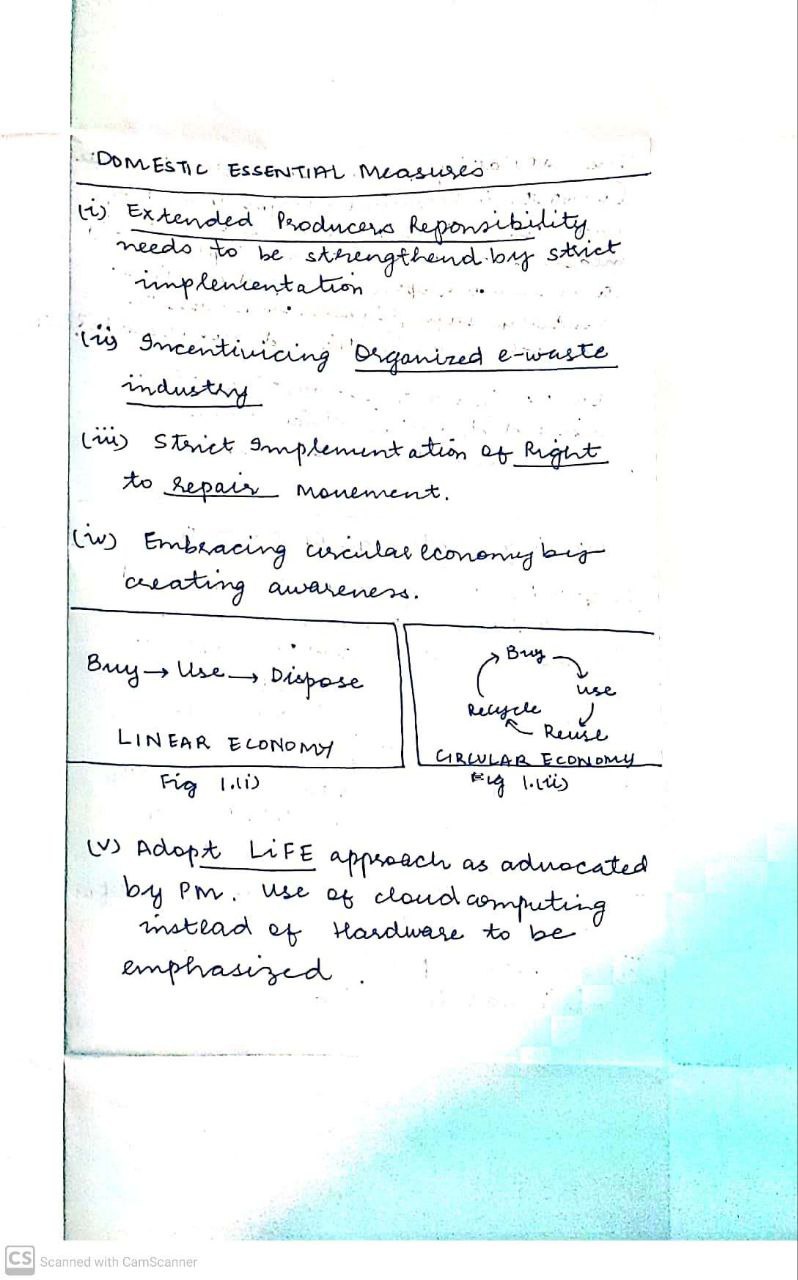 DOMESTIC ESSENTIAL Measures
(i) Extended Producers Reponsibility
needs to be strengthend by strict
implementation
(ii) Incentivicing Organized e-waste
industry
(iii) Strict Implementation of Right
to repair Movement.
(iv) Embracing circular economy by
creating awareness.
Buy → Use → Dispose
LINEAR ECONOMY
Fig 1.(i)
Buy
use
Reuse
Recycle
CIRCULAR ECONOMY
Fig 1.(ii)
(v) Adopt LiFE approach as advocated
by PM. Use of cloud computing
instead of Hardware to be
emphasized.
CS Scanned with CamScanner